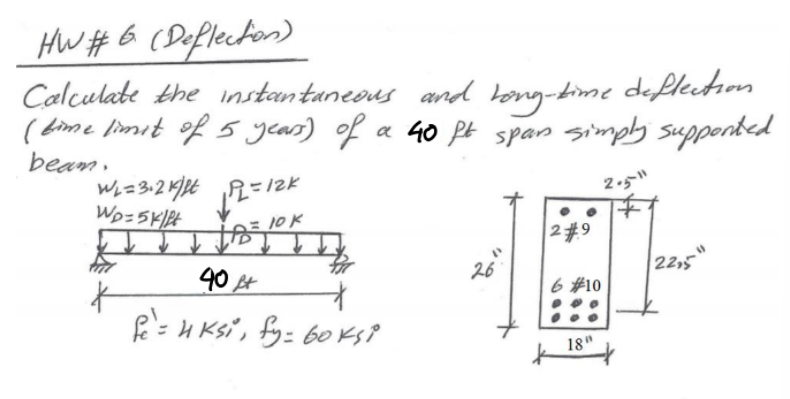 HW # 6 (Deflection)
Calculate the instantaneous and Long-time deflection
(time limit of 5 years) of a 40 ft span simply supported
beam.
WL=3.2 K/ft PL=12K
WD=5K/ft PD=10K
40 ft
fc'=4 Ksi, fy=60 Ksi
2.5"
2#9
26"
22.5"
6 #10
18"